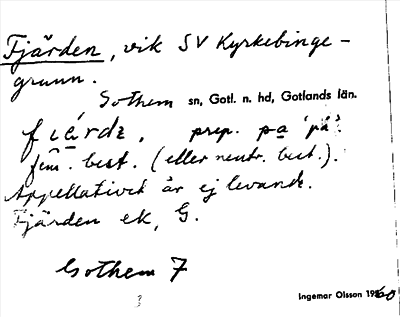 Fjärden, vik SV Kyrkebinge-
grunn.
Gothem sn, Gotl. n. hd, Gotlands län.
fiárdɛ, prep. pa 'på'.
fem. best. (eller neutr. best.).
Appellativet är ej levande.
Fjärden ek, G.
Gothem 7
3
Ingemar Olsson 1960